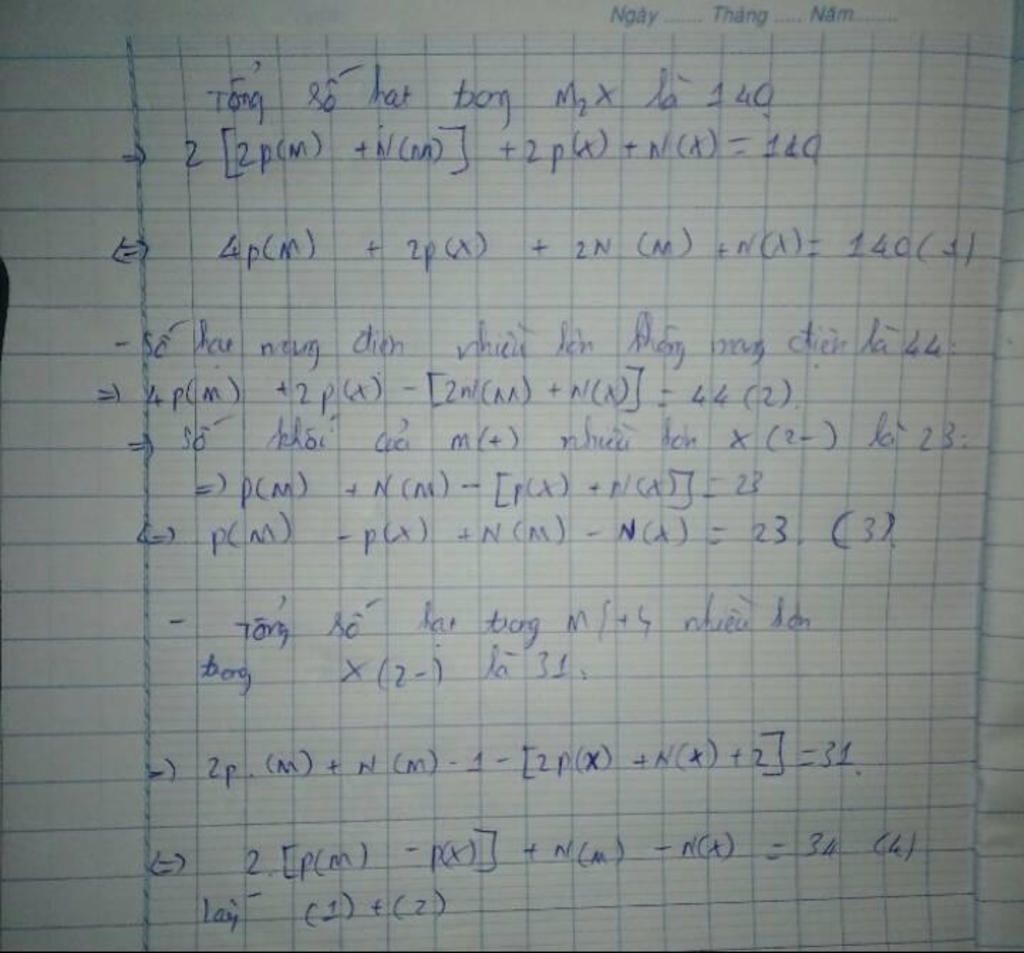 Ngày ........ Tháng ...... Năm .........
Tổng số hạt trong M₂X là 140
=> 2 [2p(M) + N(M)] + 2p(X) + N(X) = 140
<=> 4p(M) + 2p(X) + 2N (M) + N(X) = 140 (1)
- Số hạt mang điện nhiều hơn không mang điện là 44:
=> 4p(M) + 2p(X) - [2N(M) + N(X)] = 44 (2).
=> số khối của M(+) nhiều hơn X (2-) là 23:
=> p(M) + N(M) - [p(X) + N(X)] = 23
<=> p(M) - p(X) + N(M) - N(X) = 23. (3)
- Tổng số hạt trong M(+) nhiều hơn
trong X (2-) là 31.
=> 2p.(M) + N(M) - 1 - [2p(X) + N(X) + 2] = 31.
<=> 2.[p(M) - p(X)] + N(M) - N(X) = 34 (4)
lấy (1) + (2)